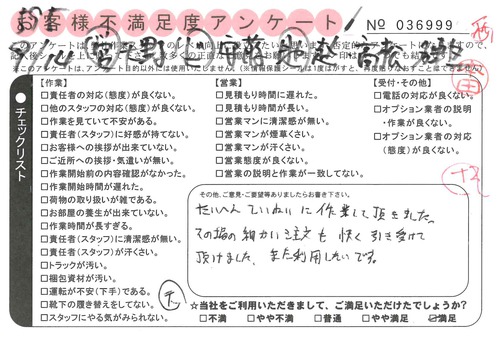 お客様不満足度アンケート
No 036999
チェックリスト
【作業】
□責任者の対応(態度)が良くない。
□他のスタッフの対応(態度)が良くない。
□作業を見ていて不安がある。
□責任者(スタッフ)に好感が持てない。
□お客様への挨拶が出来ていない。
□ご近所への挨拶・気遣いが無い。
□作業開始前の内容確認がなかった。
□作業開始時間が遅れた。
□荷物の取り扱いが雑である。
□お部屋の養生が出来ていない。
□作業時間が長すぎる。
□責任者(スタッフ)に清潔感が無い。
□責任者(スタッフ)が汗くさい。
□トラックが汚い。
□梱包資材が汚い。
□運転が不安(下手)である。
□靴下の履き替えをしてない。
□スタッフにやる気がみられない。
【営業】
□見積もり時間に遅れた。
□見積もり時間が長い。
□営業マンに清潔感が無い。
□営業マンが煙草くさい。
□営業マンが汗くさい。
□営業態度が良くない。
□営業の説明と作業が一致してない。
【受付・その他】
□電話の対応が良くない。
□オプション業者の説明
・作業が良くない。
□オプション業者の対応
(態度)が良くない。
その他、ご意見・ご要望等ありましたらお書き下さい。
たいへん ていねいに 作業して頂きました。
その場の細かい注文も 快く引き受けて
頂けました。また利用したいです。
☆当社をご利用いただきまして、ご満足いただけたでしょうか?
□不満 □やや不満 □普通 □やや満足 ☑満足